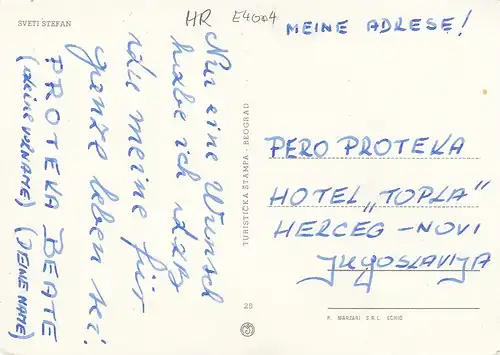 SVETI STEFAN
HR E4004
MEINE ADRESE!
Nur eine Wunsch
habe ich ıdaß
ıdu meine für
ganze leben sei
PROTEKA BEATE
(MEINE UZNAME) (DEINE NAME)
TURISTIČKA ŠTAMPA - BEOGRAD
PERO PROTEKA
HOTEL „TOPLA"
HERCEG-NOVI
Jugoslavija
28
P. MARZARI S.R.L. SCHIO